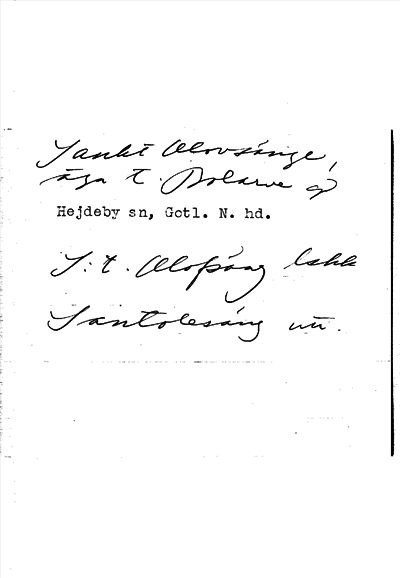 Sankt Olovsänge,
äga t. Bolarve
Hejdeby sn, Gotl. N. hd.
S:t. Olofsäng lskk
Santolesäng